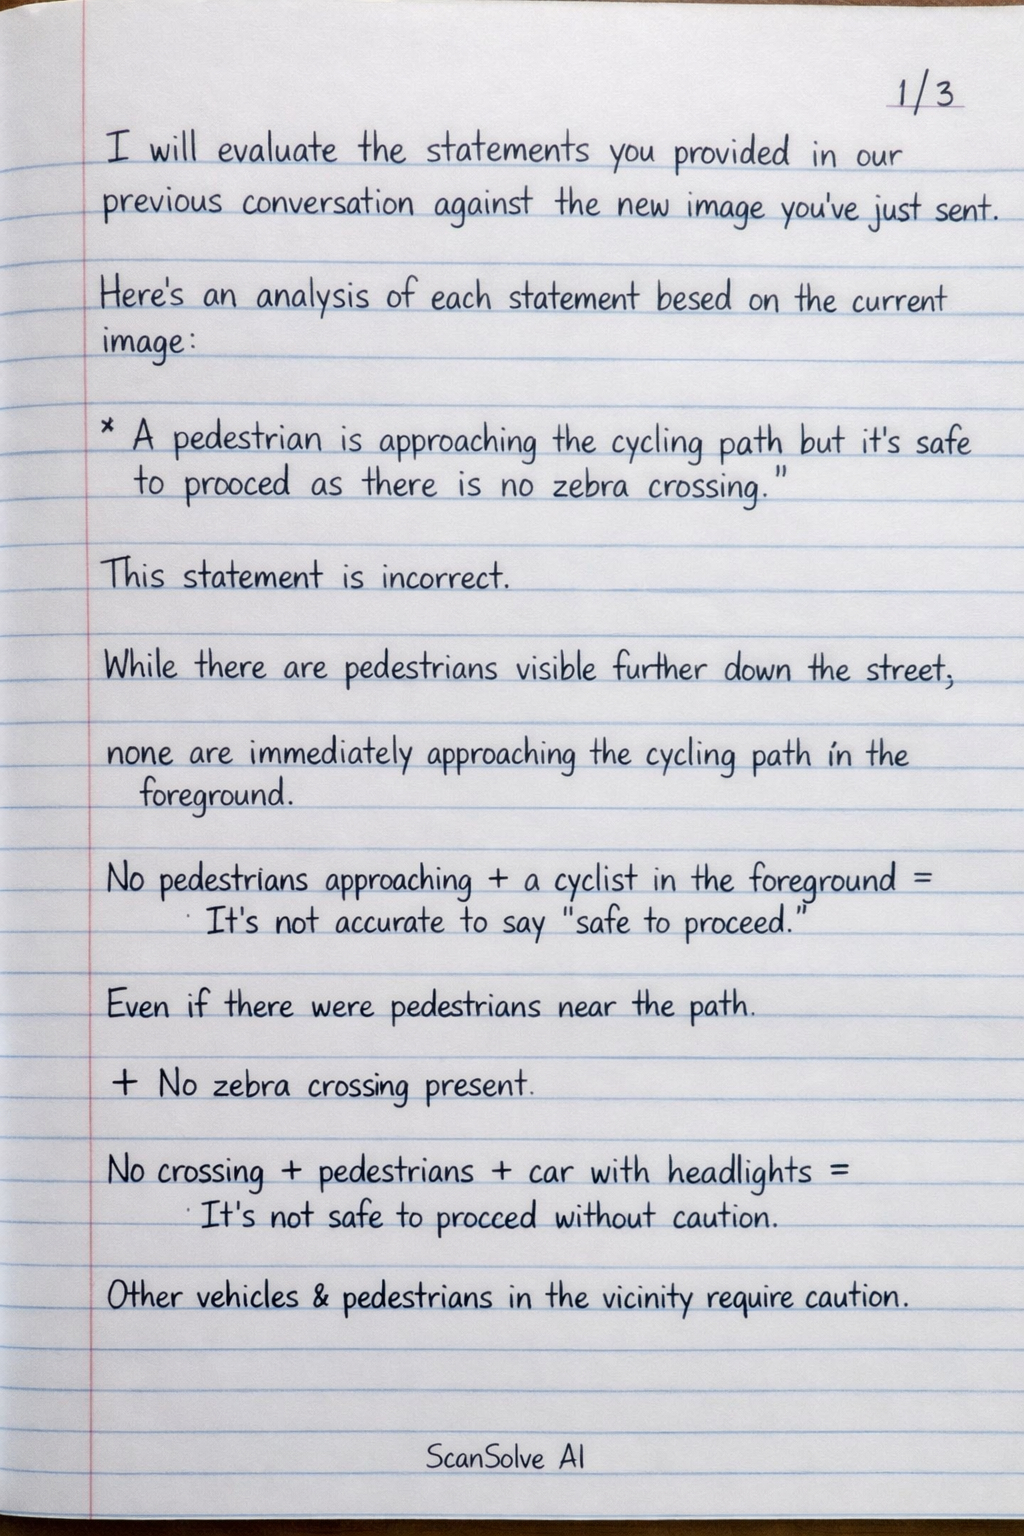 1/3
I will evaluate the statements you provided in our
previous conversation against the new image you've just sent.
Here's an analysis of each statement besed on the current
image:
* A pedestrian is approaching the cycling path but it's safe
to prooced as there is no zebra crossing."
This statement is incorrect.
While there are pedestrians visible further down the street;
none are immediately approaching the cycling path in the
foreground.
No pedestrians approaching + a cyclist in the foreground =
· It's not accurate to say "safe to proceed."
Even if there were pedestrians near the path.
+ No zebra crossing present.
No crossing + pedestrians + car with headlights =
· It's not safe to procced without caution.
Other vehicles & pedestrians in the vicinity require caution.
ScanSolve AI